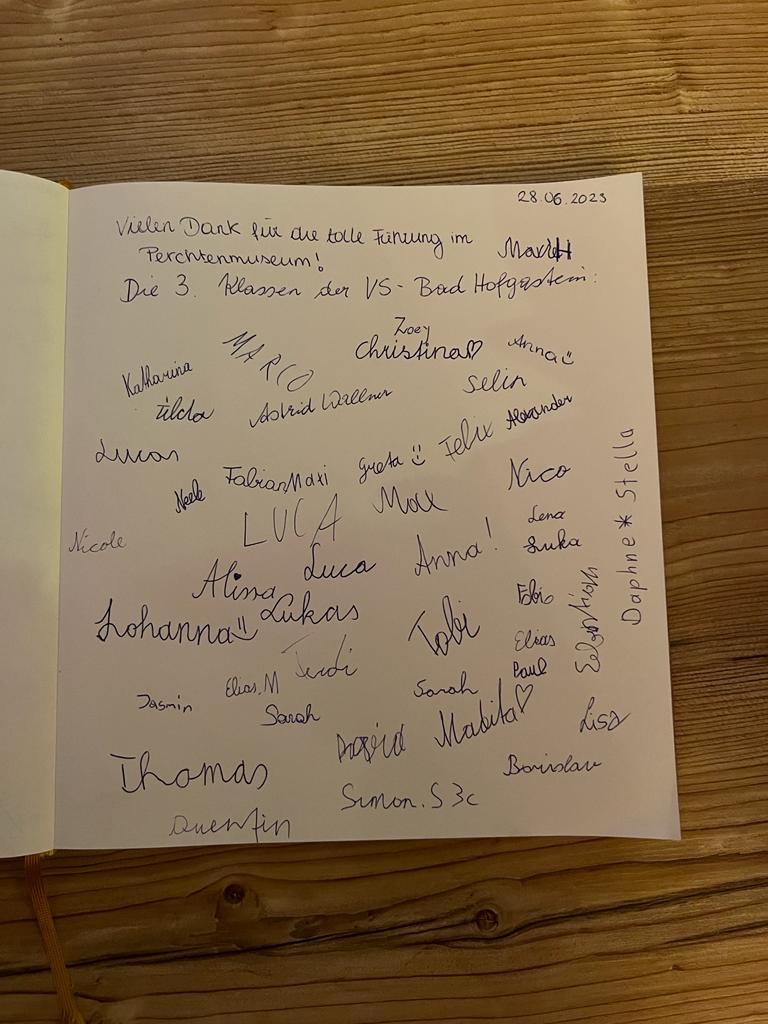 28.06.2023
Vielen Dank für die tolle Führung im
Perchtenmuseum!
Die 3. Klassen der VS- Bad Hofgastein:
Zoey
MARCO
Christina♡
Anna
Katharina
Selin
Tilda
Astrid Wallner
Alexander
Felix
Lucas
Greta
Fabian Maxi
Nico
Neele
Max
LUCA
Daphne * Stella
Lena
Luka
Nicole
Anna!
Luca
Alissa
Fabio
Lukas
Johanna
Tobi
Sebastian
Elias
Paul
Elias.M
Sarah
Jasmin
Sarah
Mabita♡
Lisa
Thomas
Borislav
Simon.S 3c
Quentin